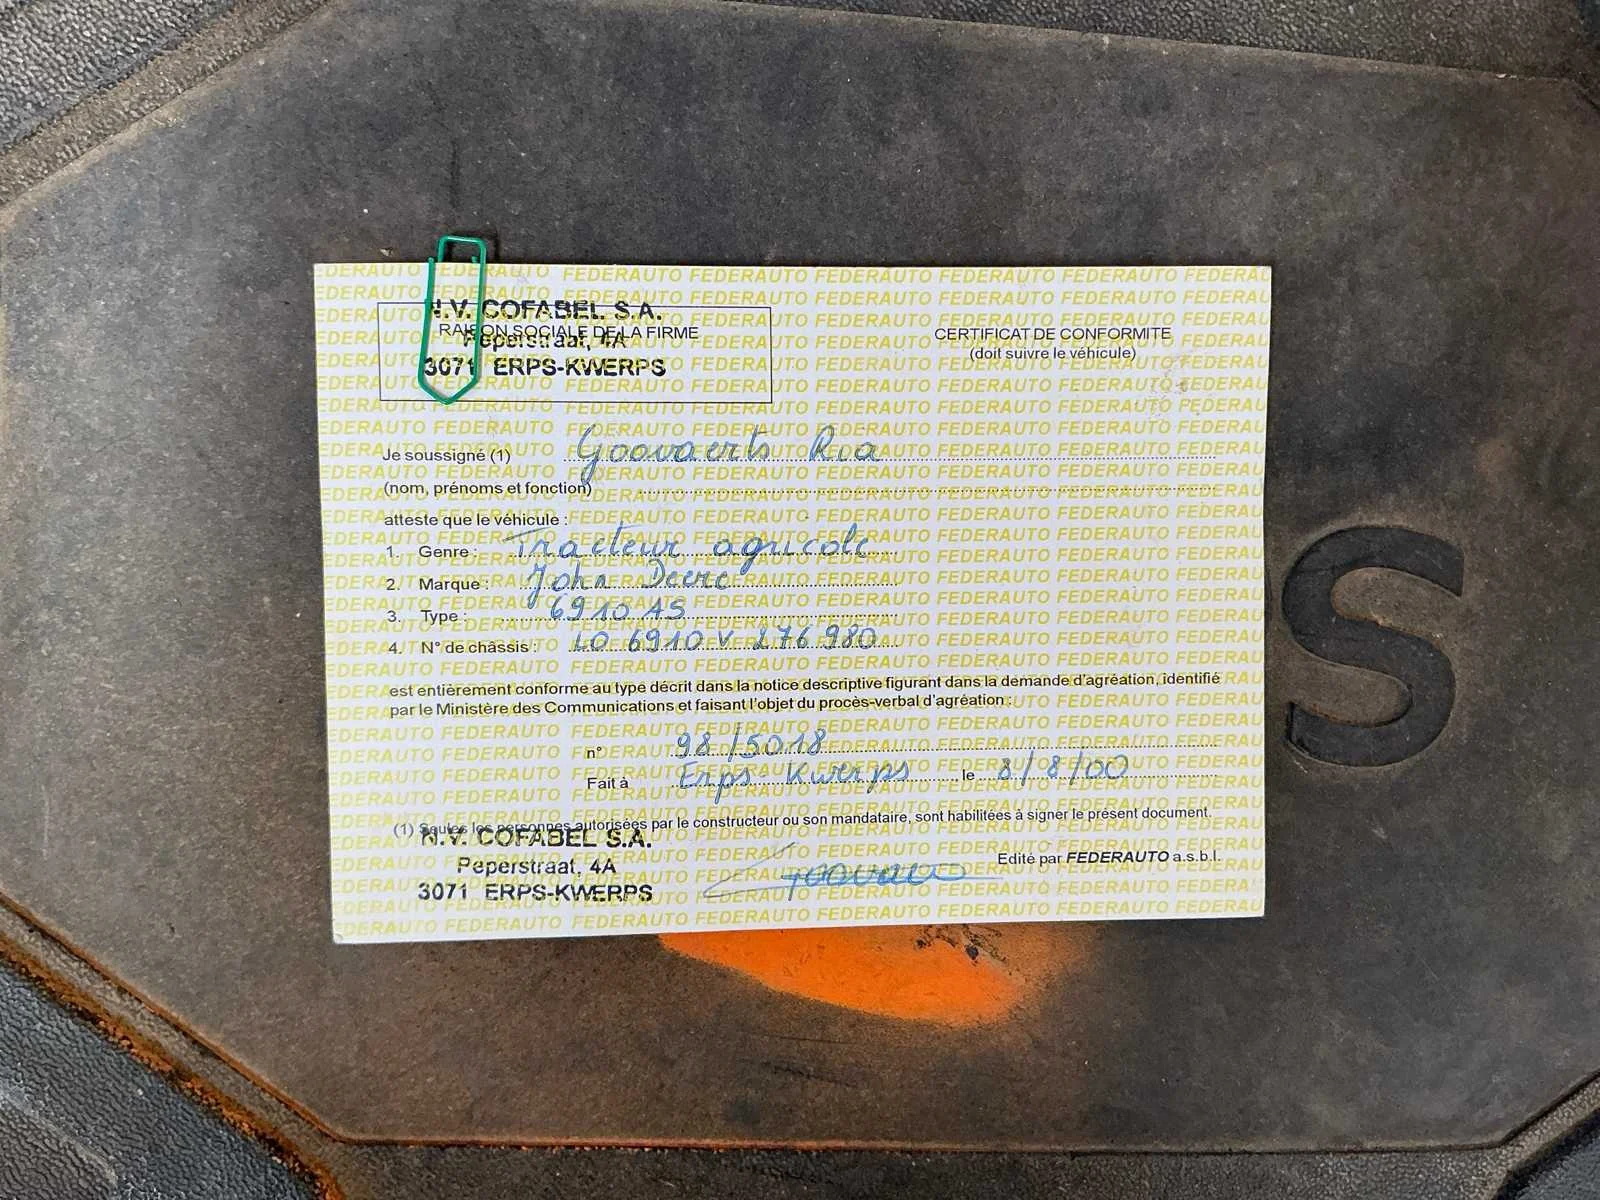 N.V. COFABEL S.A.
RAISON SOCIALE DE LA FIRME
Peperstraat, 4A
3071 ERPS-KWERPS
CERTIFICAT DE CONFORMITE
(doit suivre le véhicule)
Je soussigné (1) Goovaerts Ria
(nom, prénoms et fonction)
atteste que le véhicule :
1. Genre : Tracteur agricole
2. Marque : John Deere
3. Type : 6910 AS
4. N° de châssis : LO 6910 V 276 980
est entièrement conforme au type décrit dans la notice descriptive figurant dans la demande d'agréation, identifié
par le Ministère des Communications et faisant l'objet du procès-verbal d'agréation :
n° 98/5018
Fait à Erps-Kwerps le 8/8/00
(1) Seules les personnes autorisées par le constructeur ou son mandataire, sont habilitées à signer le présent document.
N.V. COFABEL S.A.
Peperstraat, 4A
3071 ERPS-KWERPS
Edité par FEDERAUTO a.s.b.l.
S